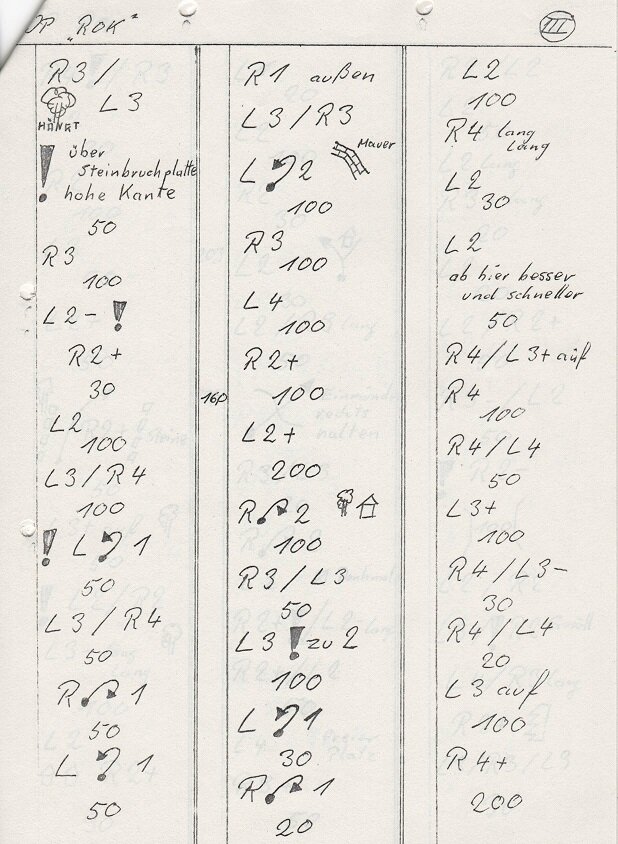 OP "ROK"
III
R3/
L3
HÄNGT
! über
Steinbruchplatte
hohe Kante
50
R3
100
L2- !
R2+
30
L2
100
L3/R4
100
! L 1
50
L3/R4
50
R 1
50
L 1
50
R1 außen
L3/R3
L 2 Mauer
100
R3
100
L4
100
R2+
160 100
L2+
200
R 2
100
R3/L3
50
L3 ! zu 2
100
L 1
30
R 1
20
L2
100
R4 lang
lang
L2
30
L2
ab hier besser
und schneller
50
R4/L3+ auf
R4
100
R4/L4
50
L3+
100
R4/L3-
30
R4/L4
20
L3 auf
100
R4+
200